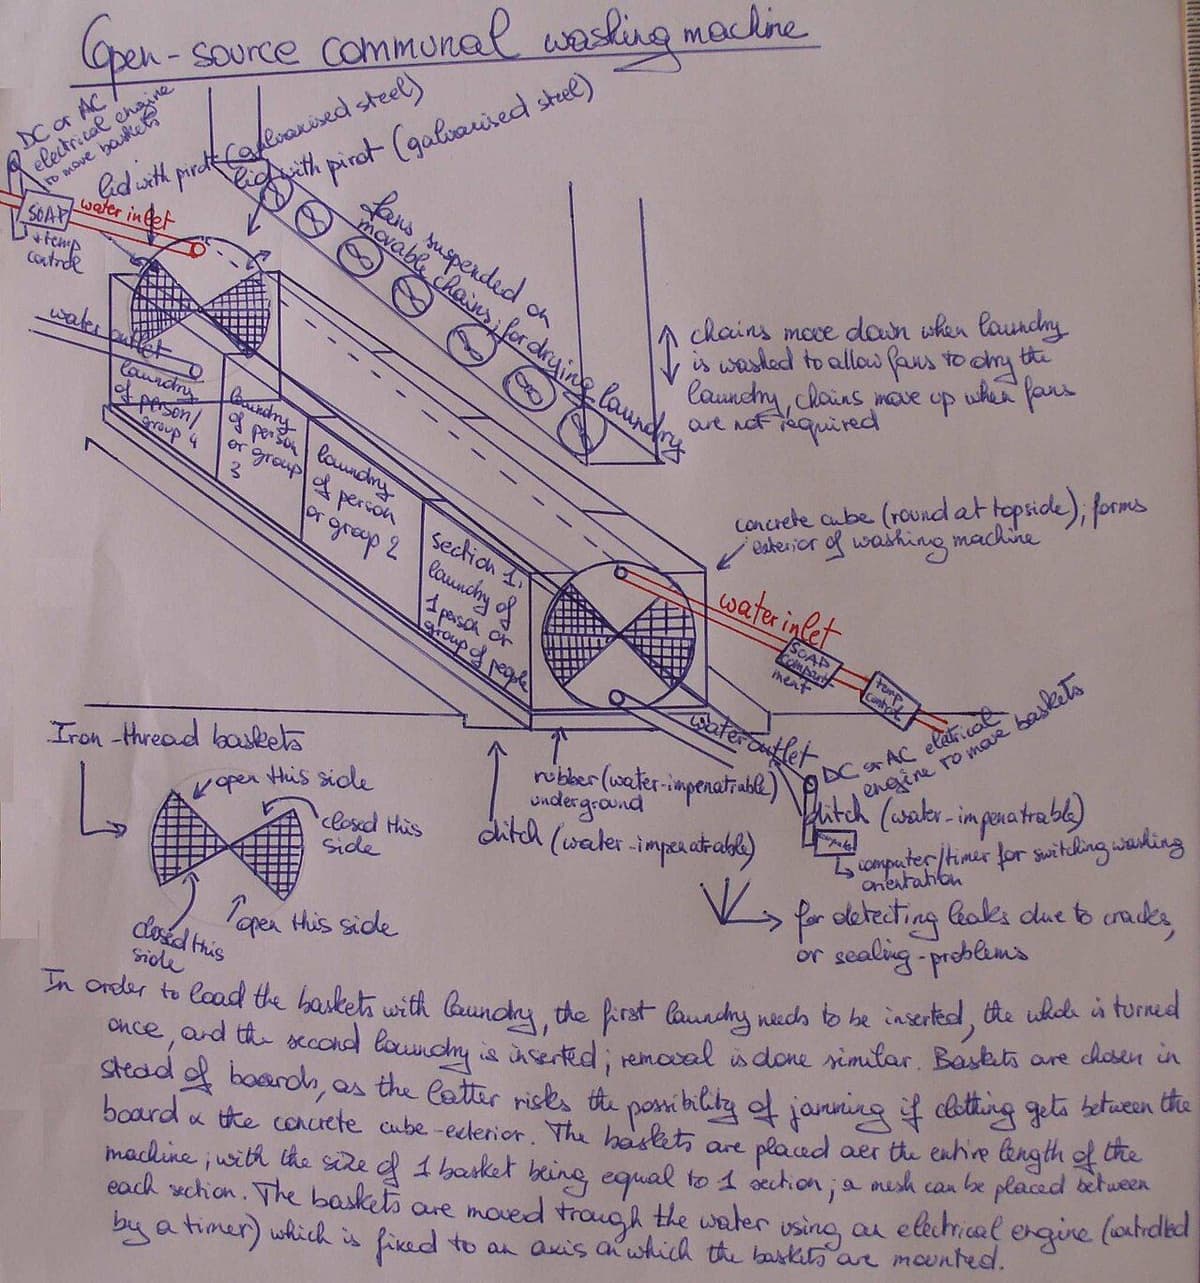 Open-source communal washing machine
DC or AC
electrical engine
to move baskets
lid with pivot (galvanised steel)
lid with pivot (galvanised steel)
SOAP
+ temp
control
water inlet
fans suspended on
movable chains; for drying laundry
water outlet
laundry
of person/
group 4
laundry
of person
or group
3
laundry
of person
or group 2
section 1:
laundry of
1 person or
group of people
chains move down when laundry
is washed to allow fans to dry the
laundry, chains move up when fans
are not required
concrete cube (round at topside); forms
exterior of washing machine
water inlet
SOAP
compart-
ment
temp
control
water outlet
DC or AC eletrical
engine to move baskets
Iron-thread baskets
open this side
closed this
side
closed this
side
open this side
rubber (water-impenatrable)
underground
ditch (water-impenatrable)
ditch (water-impenatrable)
computer/timer for switching washing
orientation
for detecting leaks due to cracks,
or sealing-problems
In order to load the baskets with laundry, the first laundry needs to be inserted, the whole is turned
once, and the second laundry is inserted; removal is done similar. Baskets are chosen in
stead of boards, as the latter risks the possibility of jamming if clothing gets between the
board & the concrete cube-exterior. The baskets are placed over the entire length of the
machine; with the size of 1 basket being equal to 1 section; a mesh can be placed between
each section. The baskets are moved trough the water using an electrical engine (controlled
by a timer) which is fixed to an axis on which the baskets are mounted.